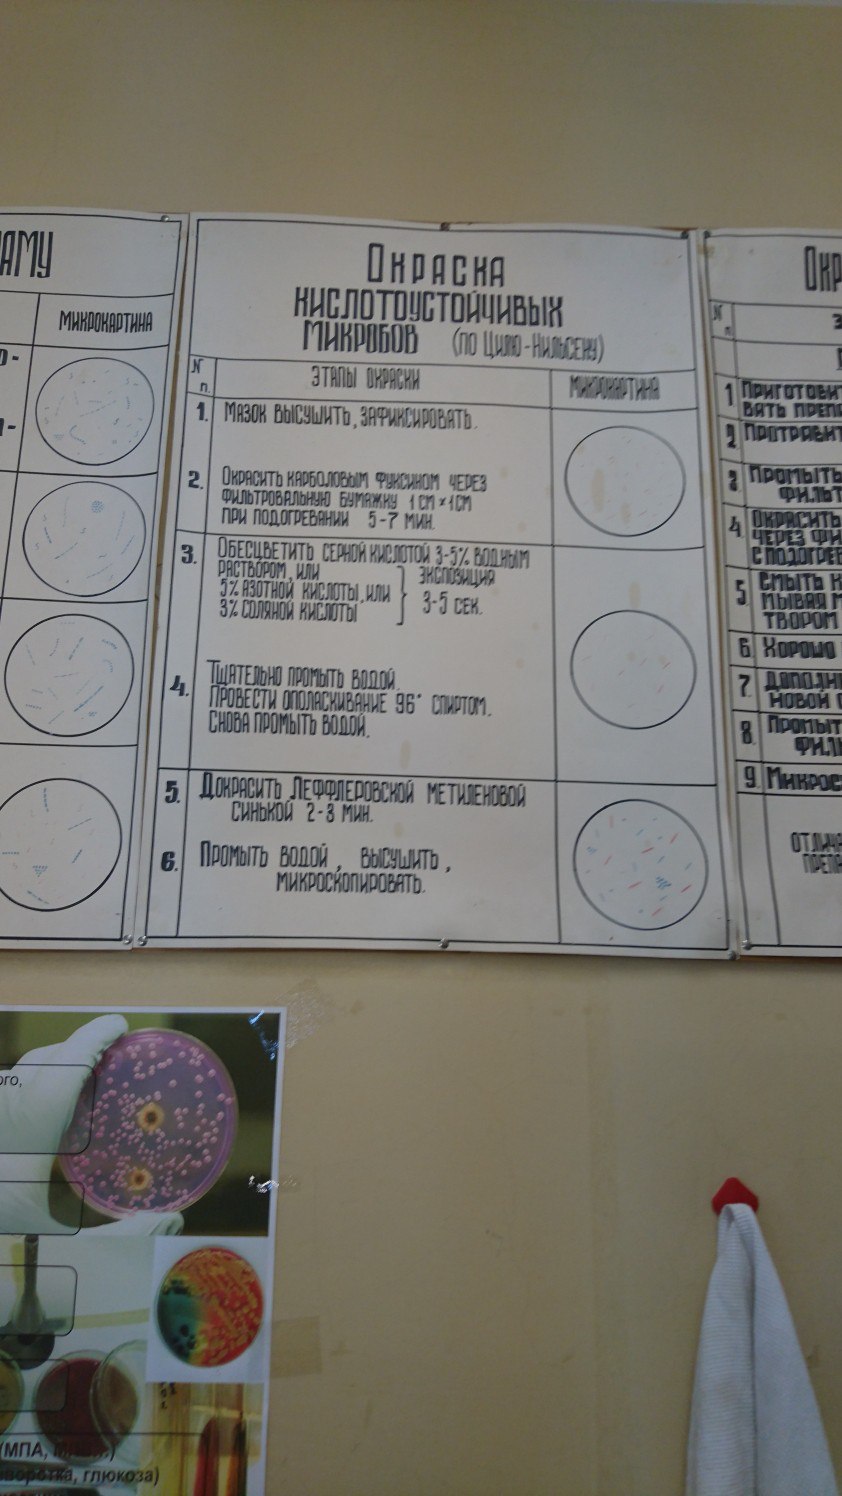 АМУ
МИКРОКАРТИНА
ОКРАСКА
КИСЛОТОУСТОЙЧИВЫХ
МИКРОБОВ (ПО ЦИЛЮ-НИЛЬСЕНУ)
N п. ЭТАПЫ ОКРАСКИ МИКРОКАРТИНА
1. МАЗОК ВЫСУШИТЬ, ЗАФИКСИРОВАТЬ.
2. ОКРАСИТЬ КАРБОЛОВЫМ ФУКСИНОМ ЧЕРЕЗ
ФИЛЬТРОВАЛЬНУЮ БУМАЖКУ 1 СМ × 1 СМ
ПРИ ПОДОГРЕВАНИИ 5-7 МИН.
3. ОБЕСЦВЕТИТЬ СЕРНОЙ КИСЛОТОЙ 3-5% ВОДНЫМ
РАСТВОРОМ, ИЛИ
5% АЗОТНОЙ КИСЛОТЫ, ИЛИ
3% СОЛЯНОЙ КИСЛОТЫ
ЭКСПОЗИЦИЯ
3-5 СЕК.
4. ТЩАТЕЛЬНО ПРОМЫТЬ ВОДОЙ.
ПРОВЕСТИ ОПОЛАСКИВАНИЕ 96° СПИРТОМ.
СНОВА ПРОМЫТЬ ВОДОЙ.
5. ДОКРАСИТЬ ЛЕФФЛЕРОВСКОЙ МЕТИЛЕНОВОЙ
СИНЬКОЙ 2-3 МИН.
6. ПРОМЫТЬ ВОДОЙ, ВЫСУШИТЬ,
МИКРОСКОПИРОВАТЬ.
ОКР
N п. Э
1 ПРИГОТОВИТ
ВАТЬ ПРЕПА
2 ПРОТРАВИТ
3 ПРОМЫТЬ
ФИЛЬТ
4 ОКРАСИТЬ
ЧЕРЕЗ ФИ
С ПОДОГРЕВ
5 СМЫТЬ К
МЫВАЯ М
ТВОРОМ
6 ХОРОШО
7 ДОПОЛНИ
НОВОЙ С
8 ПРОМЫТ
ФИЛЬ
9. МИКРОС
ОТЛИЧА
ПРЕПА
ого,
(МПА,
воротка, глюкоза)